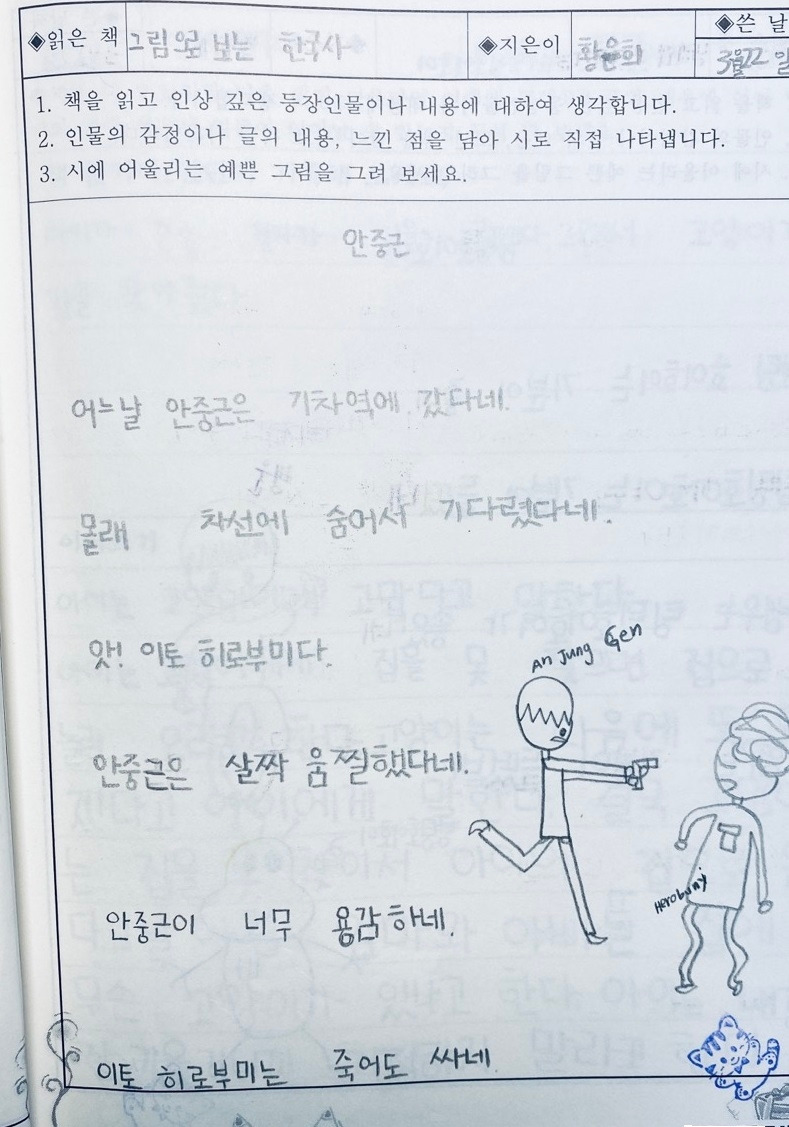 ◈읽은 책 그림으로 보는 한국사 ◈지은이 황은희 ◈쓴 날
3월22일
1. 책을 읽고 인상 깊은 등장인물이나 내용에 대하여 생각합니다.
2. 인물의 감정이나 글의 내용, 느낀 점을 담아 시로 직접 나타냅니다.
3. 시에 어울리는 예쁜 그림을 그려 보세요.
안중근
어느날 안중근은 기차역에 갔다네.
몰래 차선에 숨어서 기다렸다네.
앗! 이토 히로부미다.
An Jung Gen
안중근은 살짝 움찔했다네.
Herobumi
안중근이 너무 용감하네.
이토 히로부미는 죽어도 싸네